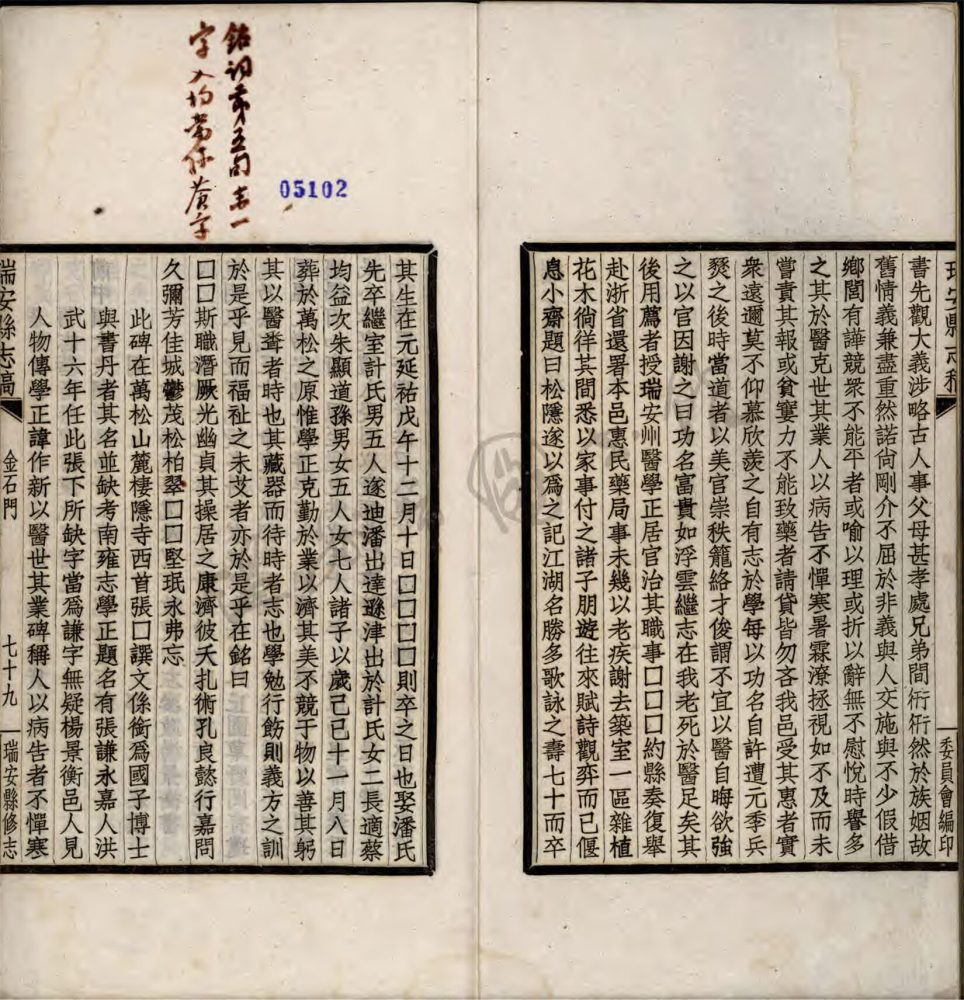 瑞安縣志稿
委員會編印
書先觀大義涉略古人事父母甚孝處兄弟間衎衎然於族姻故
舊情義兼盡重然諾尚剛介不屈於非義與人交施與不少假借
鄉閭有譁競衆不能平者或喻以理或折以辭無不慰悅時譽多
之其於醫克世其業人以病告不憚寒暑霖潦拯視如不及而未
嘗責其報或貧窶力不能致藥者請貸皆勿吝我邑受其惠者實
衆遠邇莫不仰慕欣羨之自有志於學每以功名自許遭元季兵
燹之後時當道者以美官崇秩籠絡才俊謂不宜以醫自晦欲強
之以官因謝之曰功名富貴如浮雲繼志在我老死於醫足矣其
後用薦者授瑞安州醫學正居官治其職事口口口約縣奏復舉
赴浙省還署本邑惠民藥局事未幾以老疾謝去築室一區雜植
花木徜徉其間悉以家事付之諸子朋遊往來賦詩觀弈而已偃
息小齋題曰松隱遂以爲之記江湖名勝多歌詠之壽七十而卒
銘詞第五句末一
字入均當作
05102
其生在元延祐戊午十二月十日口口口口口則卒之日也娶潘氏
先卒繼室計氏男五人遂迪潘出達遜津出於計氏女二長適蔡
均益次朱顯道孫男女五人女七人諸子以歲己巳十一月八日
葬於萬松之原惟學正克勤於業以濟其美不競于物以善其躬
其以醫聾者時也其藏器而待時者志也學勉行飭則義方之訓
於是乎見而福祉之未艾者亦於是乎在銘曰
口口斯職潛厥光幽貞其操居之康濟彼夭扎術孔良懿行嘉問
久彌芳佳城鬱茂松柏翠口口堅珉永弗忘
此碑在萬松山麓棲隱寺西首張口譔文係銜爲國子博士
與書丹者其名並缺考南雍志學正題名有張謙永嘉人洪
武十六年任此張下所缺字當爲謙字無疑楊景衡邑人見
人物傳學正諱作新以醫世其業碑稱人以病告者不憚寒
瑞安縣志稿
金石門
七十九
瑞安縣修志